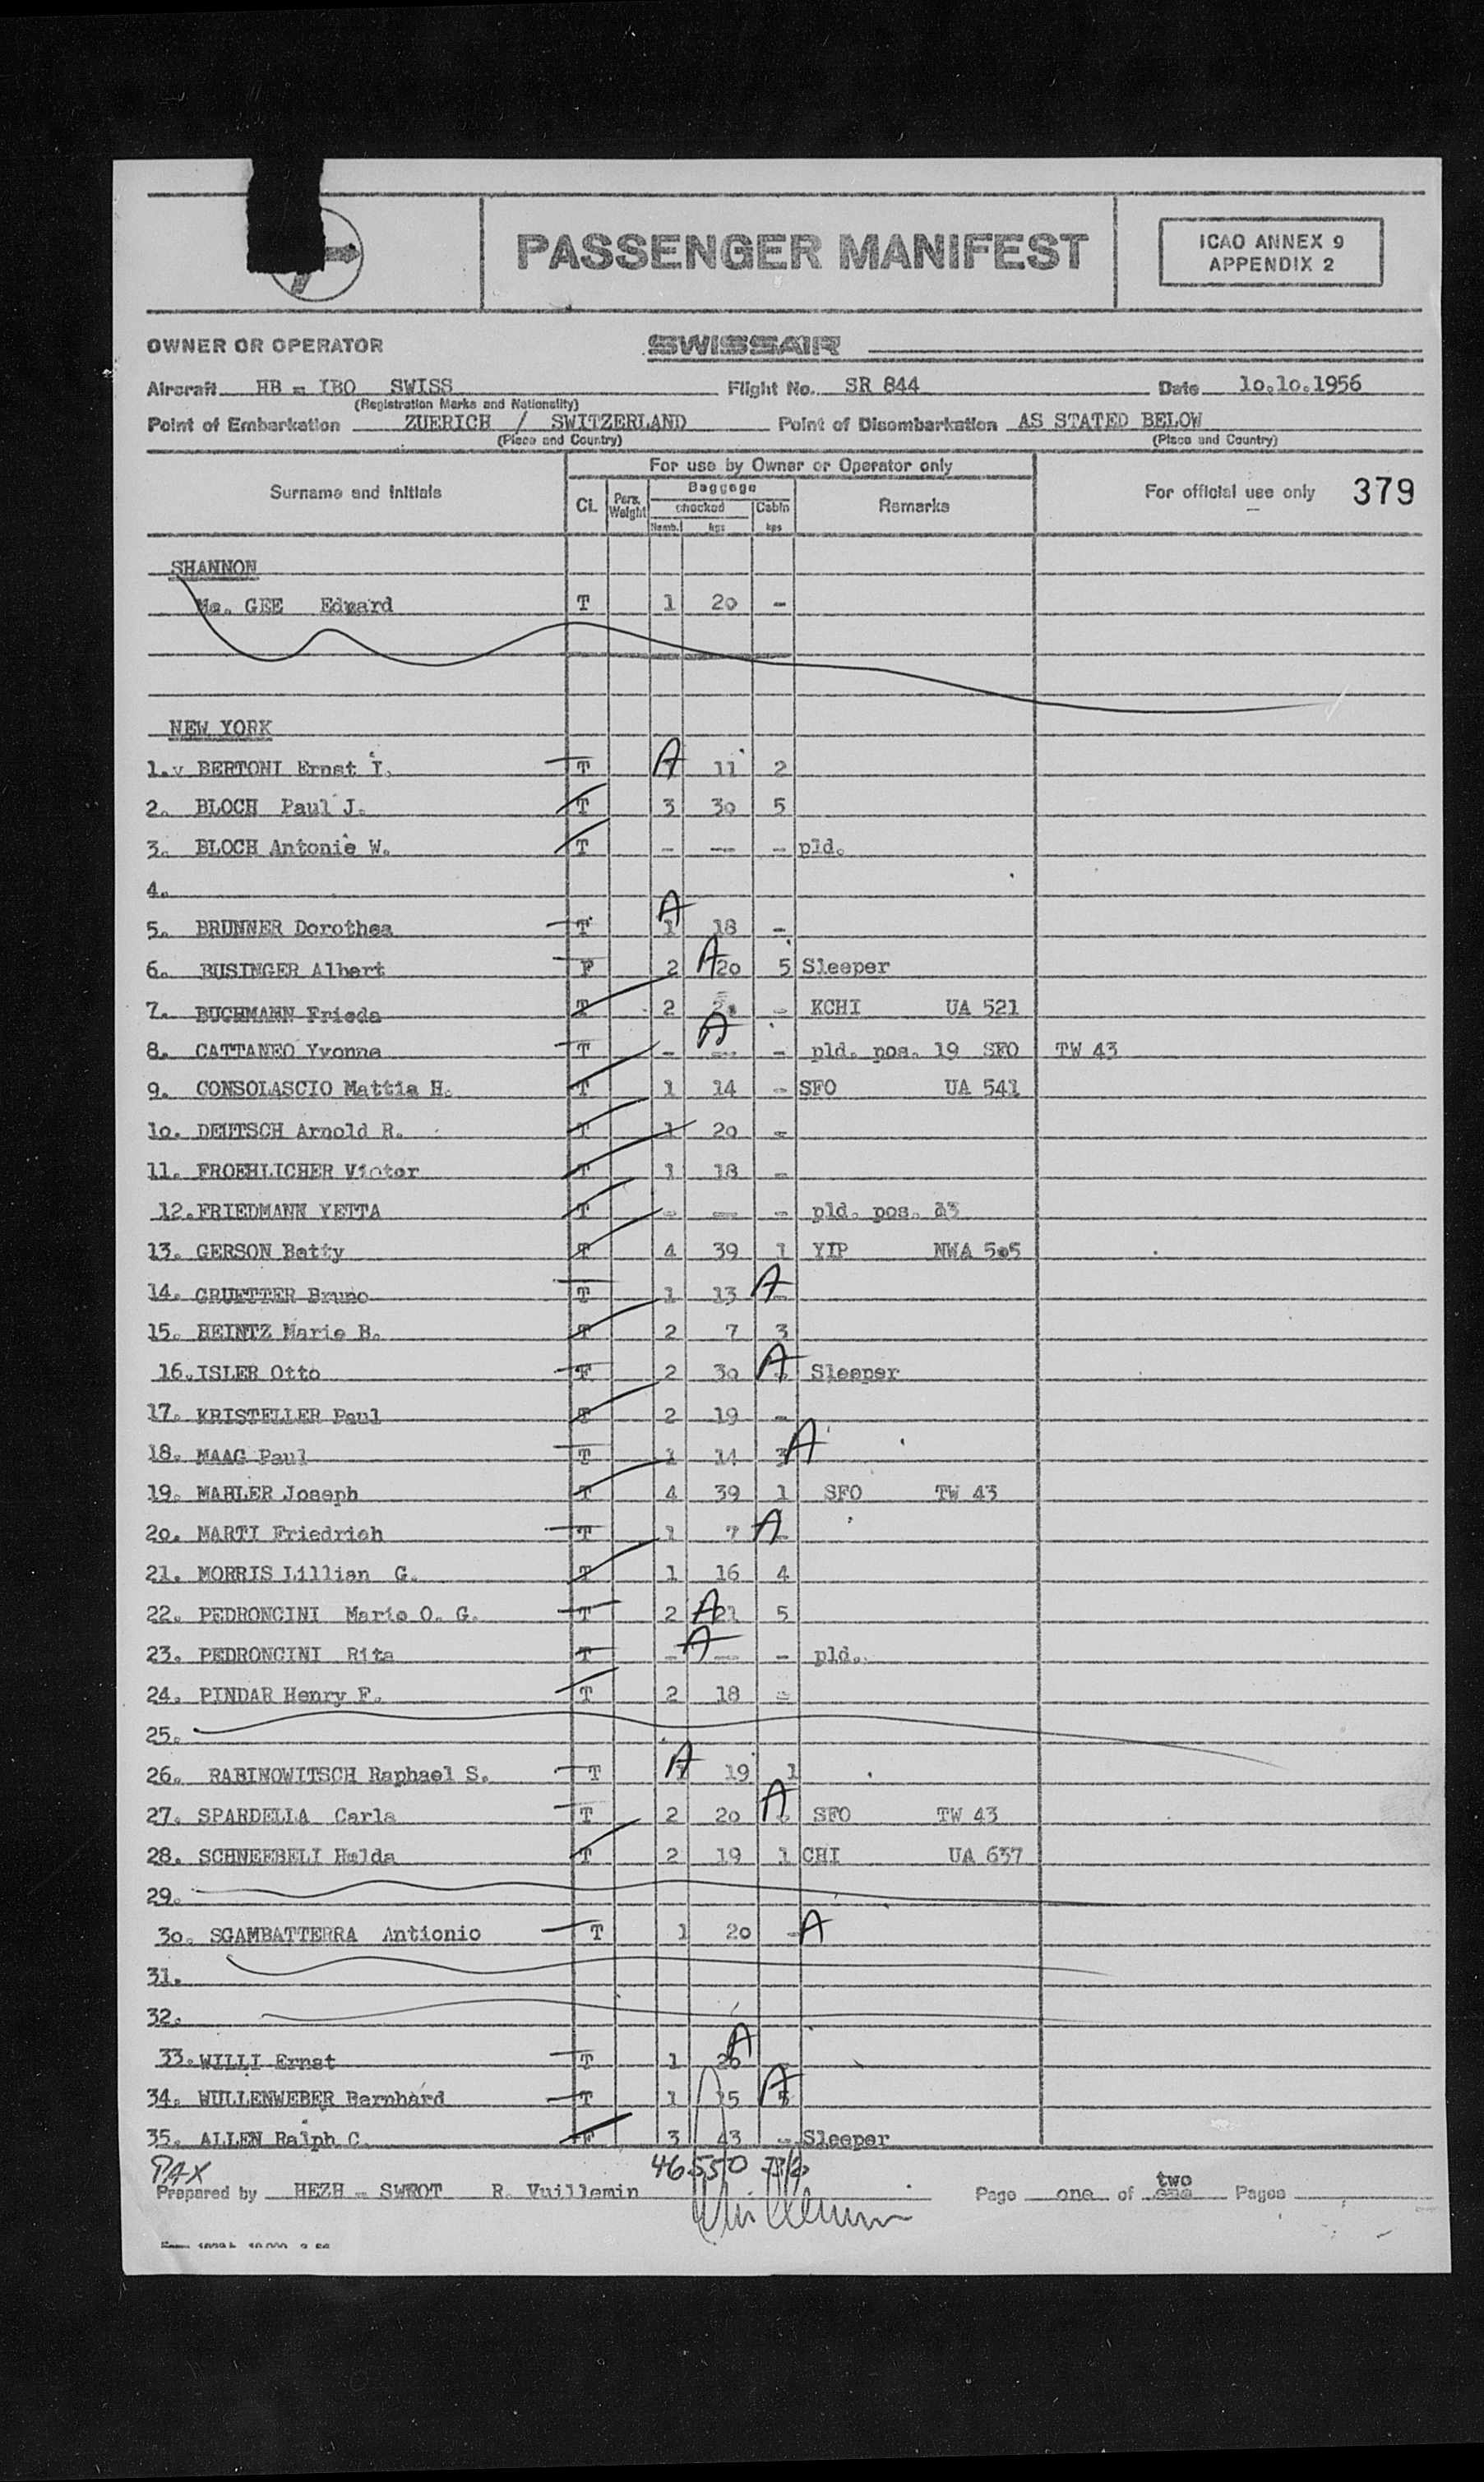 PASSENGER MANIFEST
ICAO ANNEX 9
APPENDIX 2
OWNER OR OPERATOR SWISSAIR
Aircraft HB - IBO SWISS Flight No. SR 844 Date 10.10.1956
(Registration Marks and Nationality)
Point of Embarkation ZUERICH / SWITZERLAND Point of Disembarkation AS STATED BELOW
(Place and Country) (Place and Country)
For use by Owner or Operator only
Surname and Initials Cl. Pers. Weight Baggage checked Numb. kgs Cabin kgs Remarks For official use only 379
SHANNON
Mc. GEE Edward T 1 20 -
NEW YORK
1.v BERTONI Ernst I. T A 11 2
2. BLOCH Paul J. T 3 30 5
3. BLOCH Antonie W. T - -- - pld.
4.
5. BRUNNER Dorothea T 1 A 18 -
6. BUSINGER Albert F 2 A 20 5 Sleeper
7. BUCHMANN Frieda T 2 - KCHI UA 521
8. CATTANEO Yvonne T - A -- - pld. pos. 19 SFO TW 43
9. CONSOLASCIO Mattia H. T 1 14 - SFO UA 541
10. DEUTSCH Arnold R. T 1 20 -
11. FROEHLICHER Victor T 1 18 -
12. FRIEDMANN YETTA T - -- - pld. pos.
13. GERSON Betty T 4 39 1 YIP NWA 505
14. GRUETTER Bruno T 1 13 A -
15. HEINTZ Marie B. T 2 7 3
16. ISLER Otto F 2 30 A Sleeper
17. KRISTELLER Paul T 2 19 -
18. MAAG Paul T 1 14 3 A
19. MAHLER Joseph T 4 39 1 SFO TW 43
20. MARTI Friedrich T 1 7 A -
21. MORRIS Lillian G. T 1 16 4
22. PEDRONCINI Mario O. G. T 2 A 21 5
23. PEDRONCINI Rita T - A -- - pld.
24. PINDAR Henry F. T 2 18 -
25.
26. RABINOWITSCH Raphael S. T A 19 1
27. SPARDELLA Carla T 2 20 A SFO TW 43
28. SCHNEEBELI Hulda T 2 19 1 CHI UA 637
29.
30. SGAMBATTERRA Antionio T 1 20 - A
31.
32.
33. WILLI Ernst T 1 A
34. WULLENWEBER Bernhard T 1 15 A
35. ALLEN Ralph C. F 3 43 - Sleeper
PAX 46 550
Prepared by HEZH - SWEOT R. Vuillemin Page one of two Pages
Vuillemin